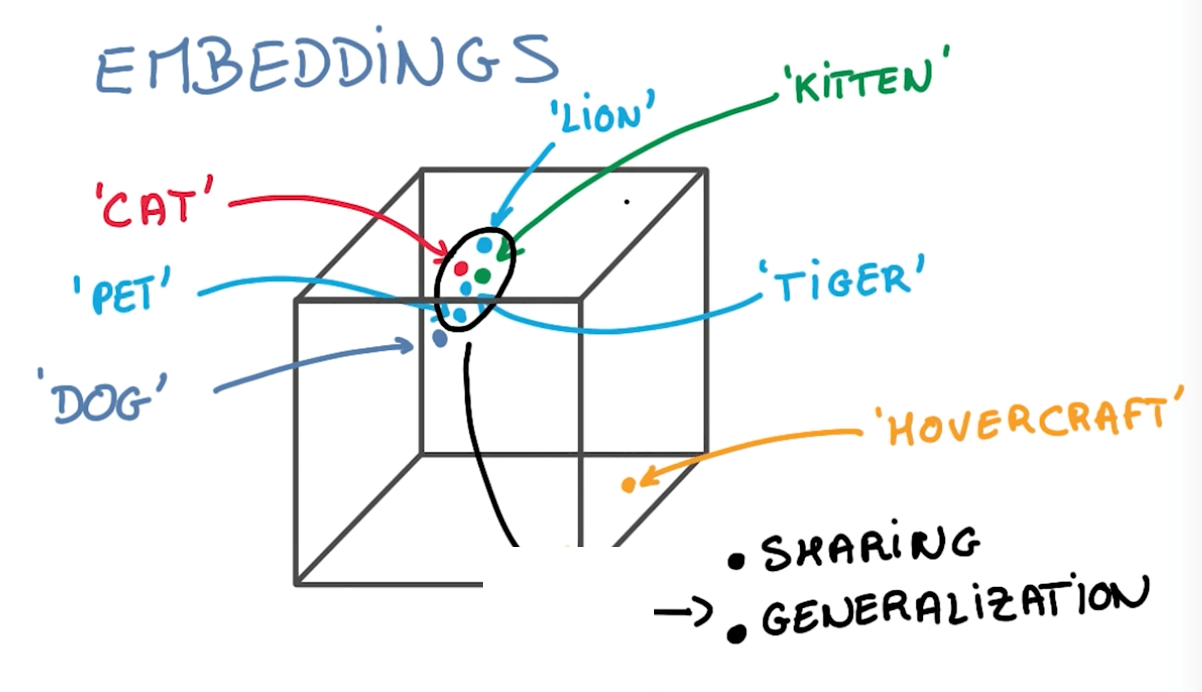 EMBEDDINGS
'LION'
'KITTEN'
'CAT'
'PET'
'TIGER'
'DOG'
'HOVERCRAFT'
• SHARING
→ • GENERALIZATION